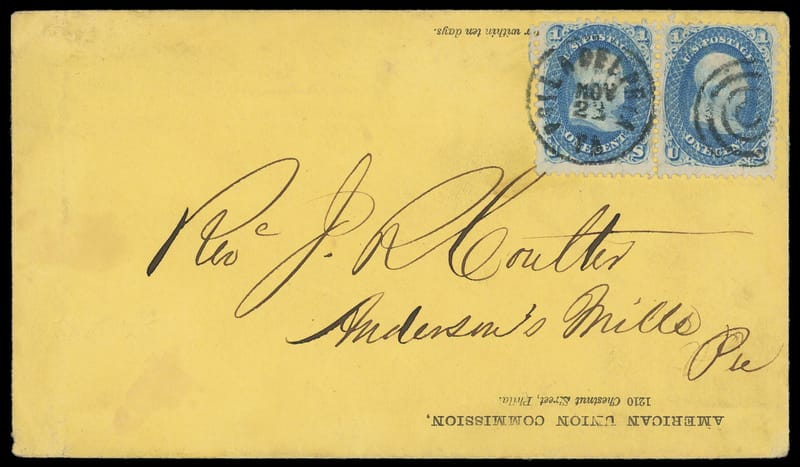 or within ten days.
1 U.S. POSTAGE 1
ONE CENT
U S
PHILADELPHIA
NOV
23
PA
1 U.S. POSTAGE 1
U ONE CENT S
Revᶜ J. R Coulter
Anderson's Mills
Pa
1210 Chestnut Street, Phila.
AMERICAN UNION COMMISSION,